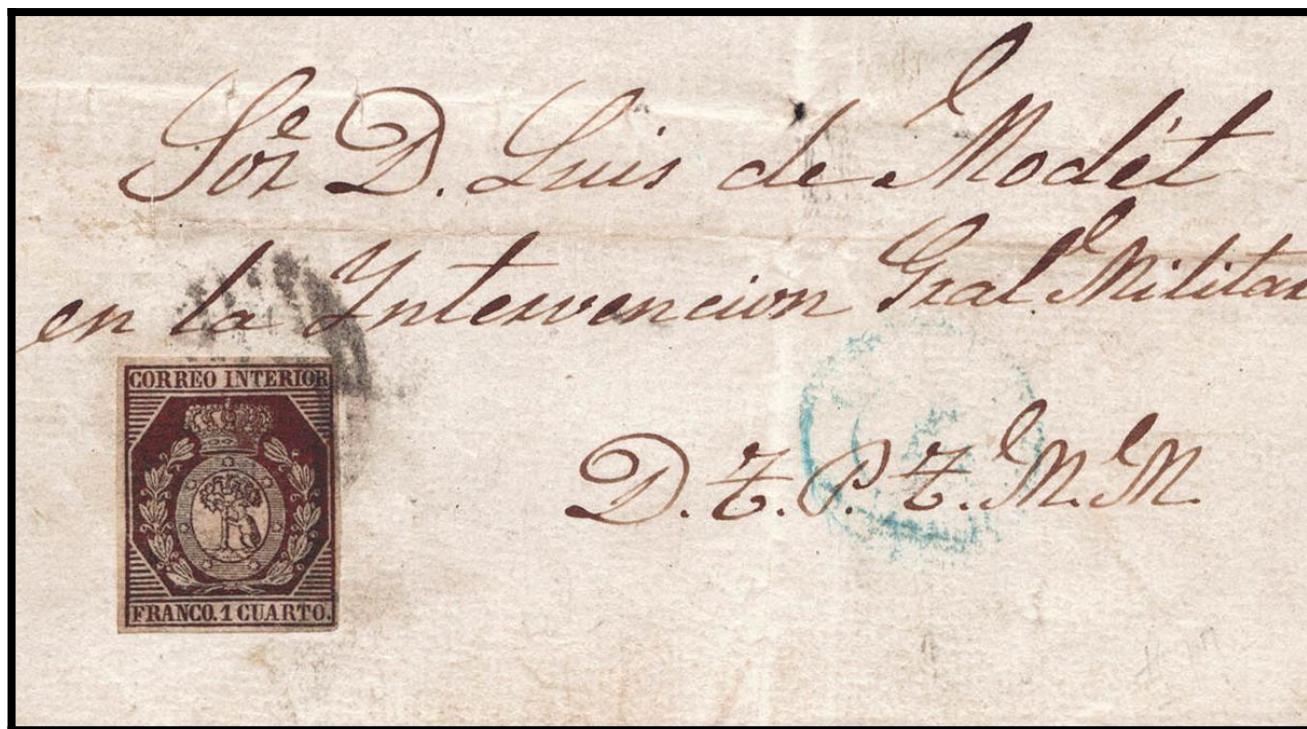 Sor. D. Luis de Modet
en la Yntervencion Gral Militar
CORREO INTERIOR
FRANCO. 1 CUARTO.